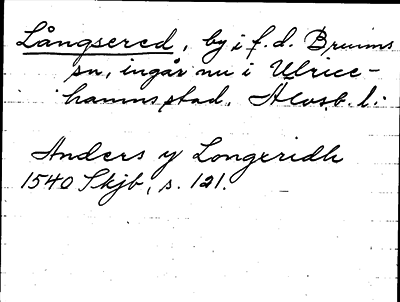 Långsered, by i f. d. Brunns
sn, ingår nu i Ulrice-
hamns stad, Älvsb. l.
Anders y Longeridh
1540 Skjb, s. 121.